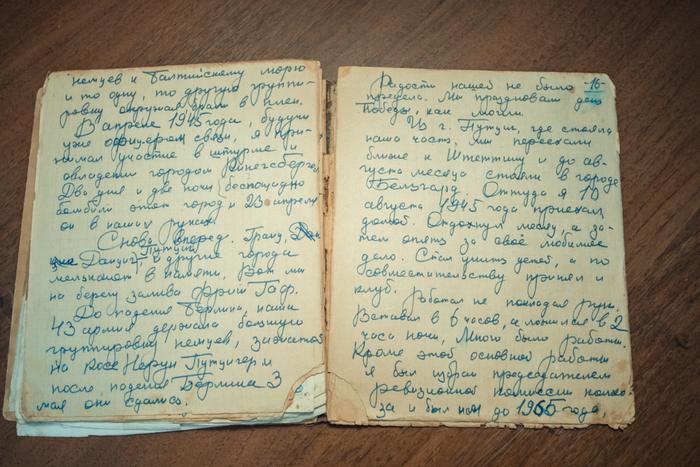 немцев к Балтийскому морю
и то одну, то другую группи-
ровку окружая брали в плен.
В апреле 1945 года, будучи
уже офицером связи, я при-
нимал участие в штурме и
овладении городом Кенегсберген
Два дня и две ночи беспощадно
бомбили этот город и 23 апреля
он в наших руках.
Снова вперёд.
Данциг, Путциг и другие города
мелькают в памяти. Вот мы
на берегу залива Фриш Гаф.
До падения Берлина, наша
43 армия держала большую
группировку немцев, зажатой
на косе Нерун Путцигер и
после падения Берлина 3
мая они сдались.
-16-
Радости нашей не было
предела. Мы праздновали день
Победы, как могли.
Из г. Путциг, где стояла
наша часть, мы переехали
ближе к Штеттину и до ав-
густа месяца стояли в городе
Бельгард. Оттуда я 10
августа 1945 года приехал
домой. Отдохнул месяц, а за-
тем опять за своё любимое
дело. Стал учить детей, а по
совместительству принял и
клуб. Работал не покладая рук.
Вставал в 6 часов, а ложился в 2
часа ночи, Много было работы.
Кроме этой основной работы
я был избран председателем
ревизионной комиссии колхо-
за и был им до 1965 года,